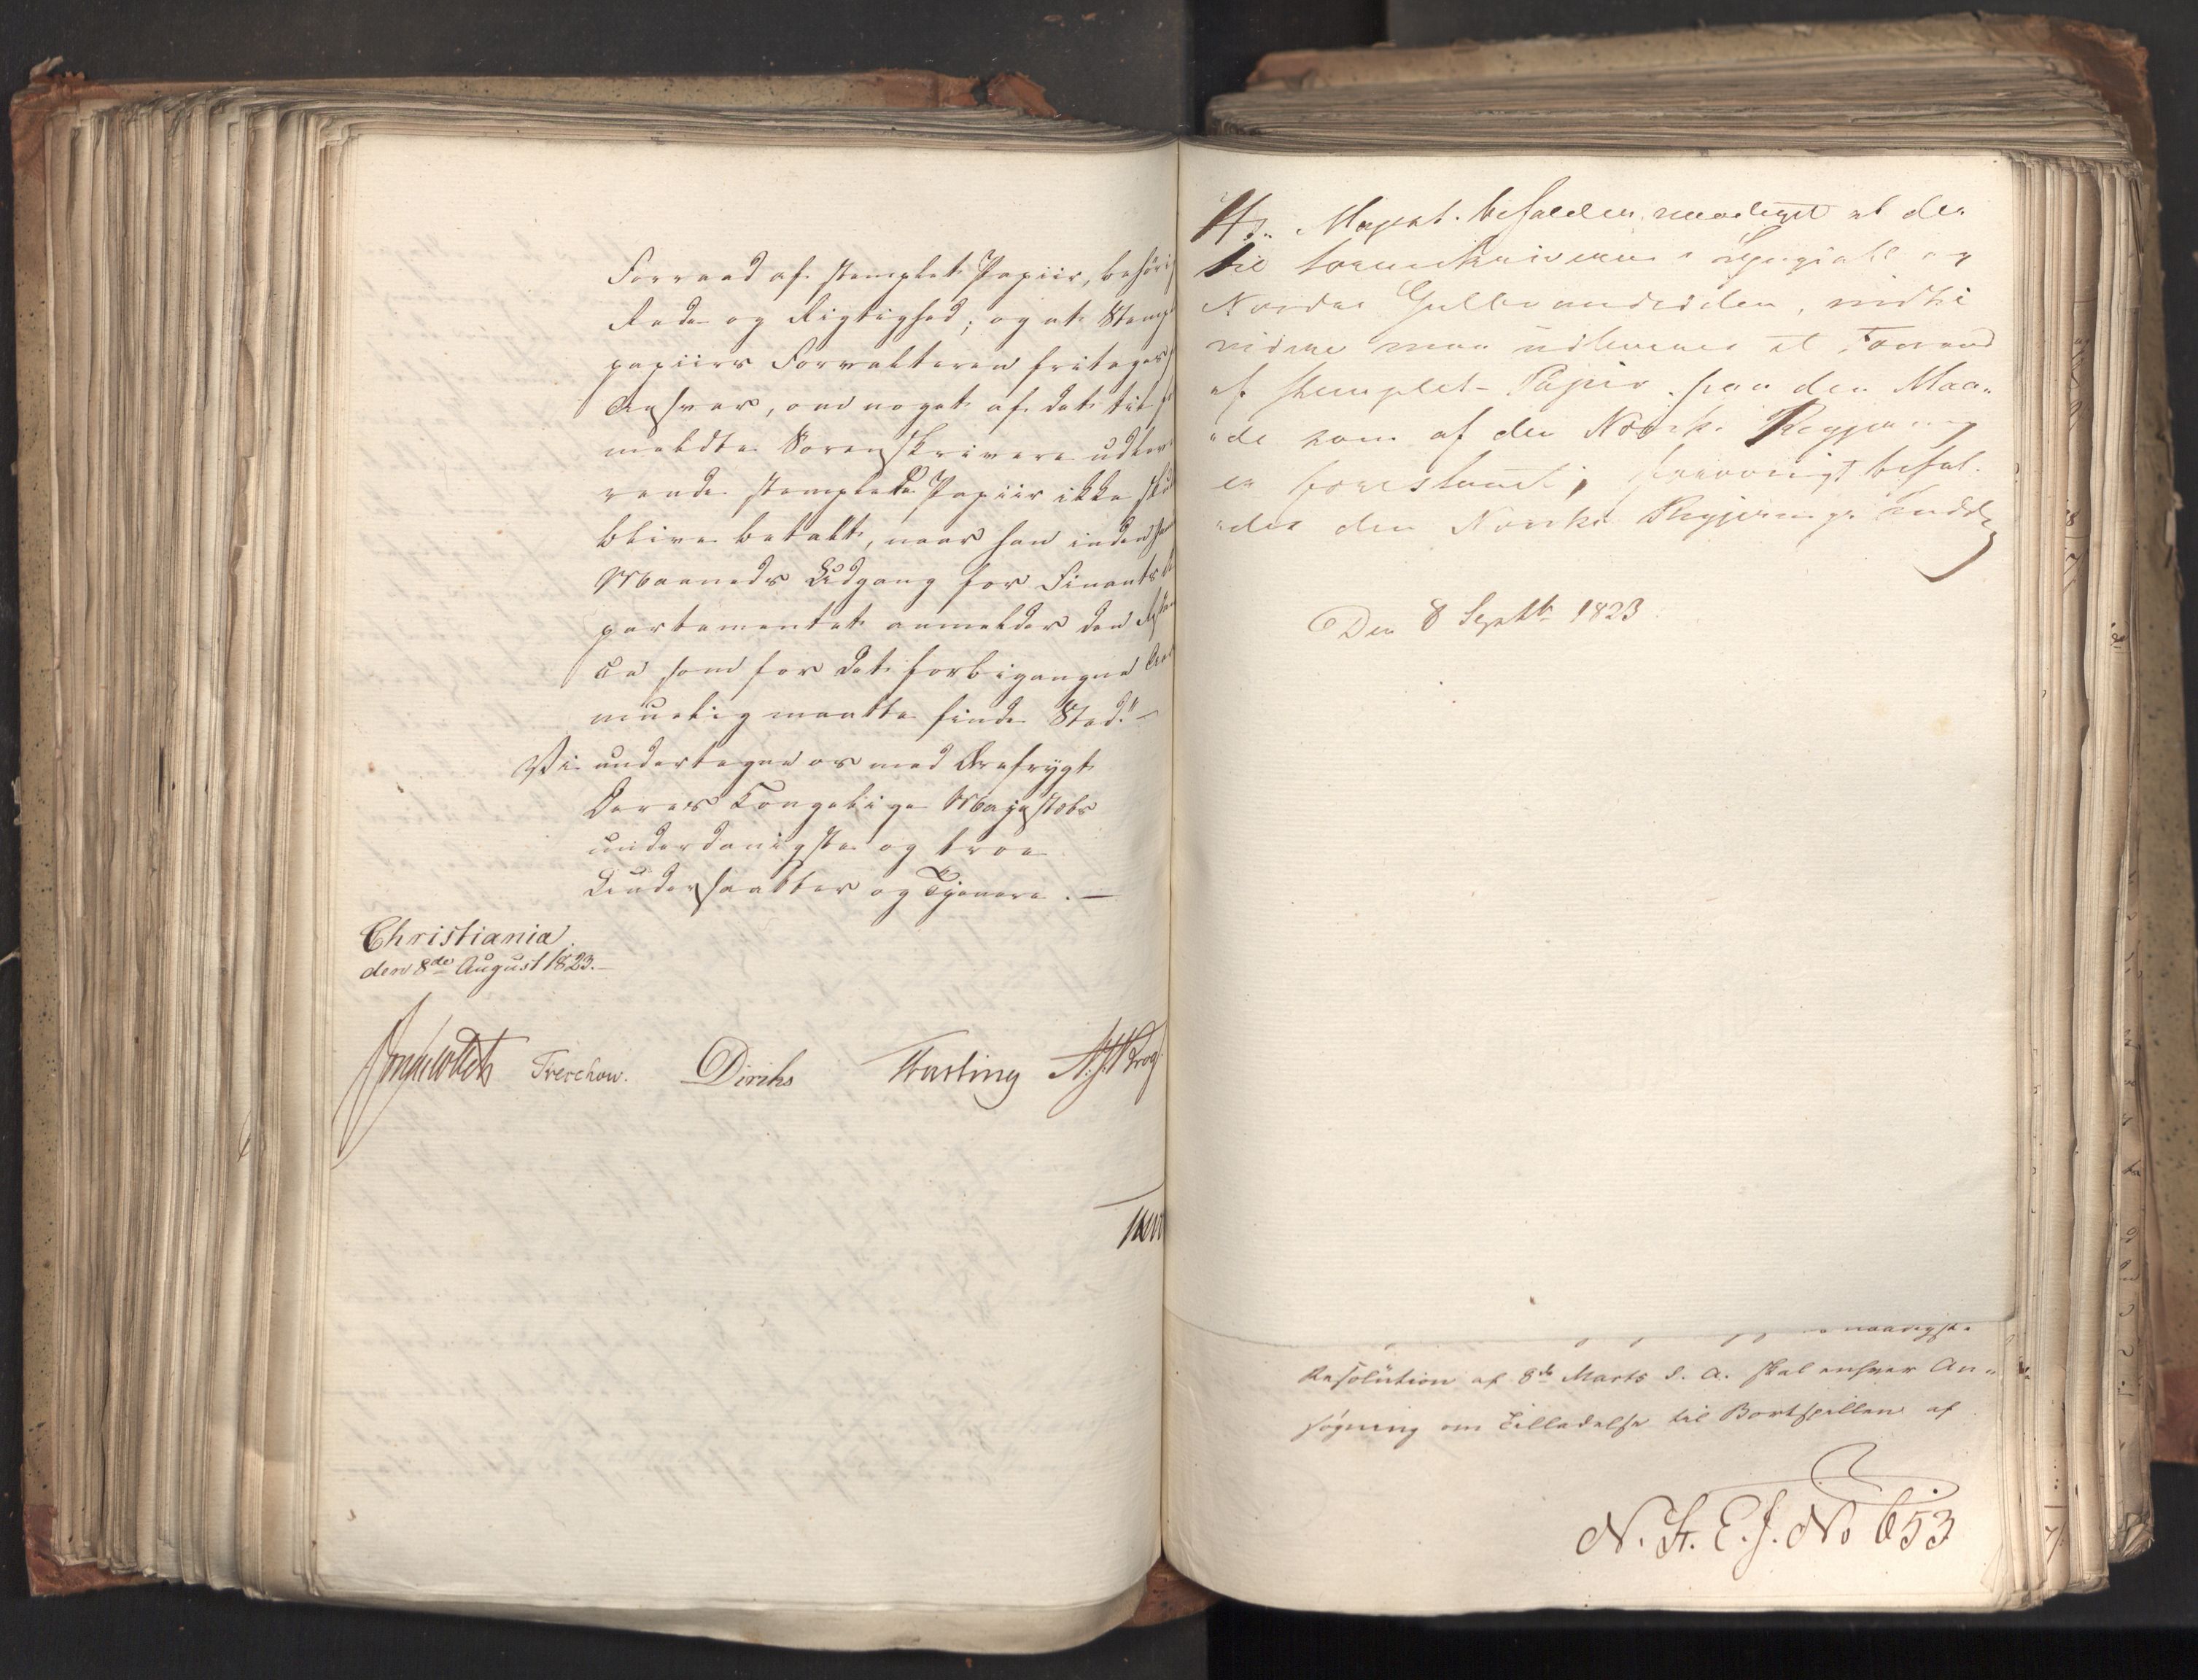 Forraad af stemplet Papiir, behörig
Rede og Rigtighed; og at Stempel
papiirs Forvalteren fritages
Ansvar, om noget af det til
meldte Sorenskrivere udleve
rende stemplede Papiir ikke
blive betalt, naar han inden
Maaneds Udgang for Finants
partementet anmelder den
ce som for det forbigangne
muelig maatte finde Sted." —
Vi undertegne os med Ærefrygt
Deres Kongelige Majestæts
underdanigste og troe
Undersaatter og Tjenere. —
Christiania
den 8de August 1823. —
Jonas Collett Treschow. Diriks Fasting
Hs. Majest. befalder naadigst at der
til Sorenskriverne i og
Nordre Gulbrandsdalen, indtil
videre maa udleveres et Forraad
af stemplet Papir paa den Maa-
de som af den Norske Regjering
er forestaaet,
den Norske Regjerings
Den 8 Septbr 1823.
naadigste
Resolution af 8de Marts d. A. skal enhver An-
søgning om Tilladelse til Bortspillen af
N. St. E. J. No 653